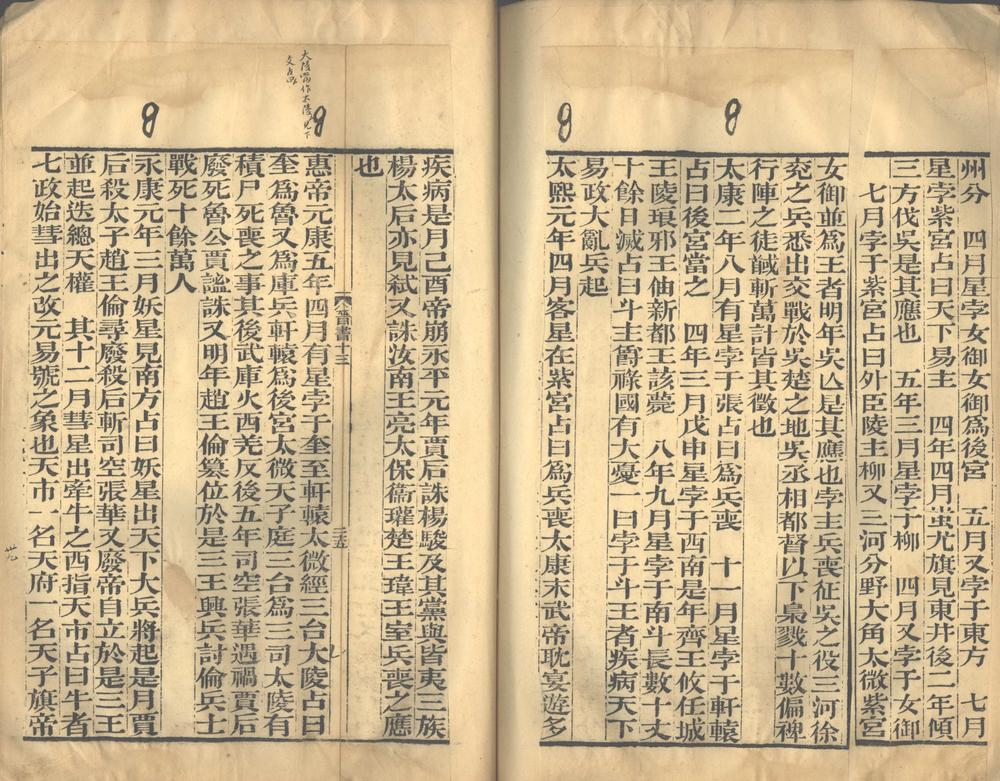 州分　四月星孛女御女御爲後宮　五月又孛于東方　七月
星孛紫宮占曰天下易主　四年四月蚩尤旗見東井後二年傾
三方伐吳是其應也　五年三月星孛于柳　四月又孛于女御
七月孛于紫宮占曰外臣陵主柳又三河分野大角太微紫宮
女御並爲王者明年吳亾是其應也孛主兵喪征吳之役三河徐
兗之兵悉出交戰於吳楚之地吳丞相都督以下梟戮十數偏裨
行陣之徒馘斬萬計皆其徵也
太康二年八月有星孛于張占曰爲兵喪　十一月星孛于軒轅
占曰後宮當之　四年三月戊申星孛于西南是年齊王攸任城
王陵琅邪王伷新都王該薨　八年九月星孛于南斗長數十丈
十餘日滅占曰斗主爵祿國有大憂一曰孛于斗王者疾病天下
易政大亂兵起
太熙元年四月客星在紫宮占曰爲兵喪太康末武帝耽宴遊多
疾病是月己酉帝崩永平元年賈后誅楊駿及其黨與皆夷三族
楊太后亦見弑又誅汝南王亮太保衞瓘楚王瑋王室兵喪之應
也
晉書十三
三五
惠帝元康五年四月有星孛于奎至軒轅太微經三台大陵占曰
奎爲魯又爲庫兵軒轅爲後宮太微天子庭三台爲三司太陵有
積尸死喪之事其後武庫火西羌反後五年司空張華遇禍賈后
廢死魯公賈謐誅又明年趙王倫篡位於是三王興兵討倫兵士
戰死十餘萬人
永康元年三月妖星見南方占曰妖星出天下大兵將起是月賈
后殺太子趙王倫尋廢殺后斬司空張華又廢帝自立於是三王
並起迭總天權　其十二月彗星出牽牛之西指天市占曰牛者
七政始彗出之改元易號之象也天市一名天府一名天子旗帝
大陵當作太陵見下
文占